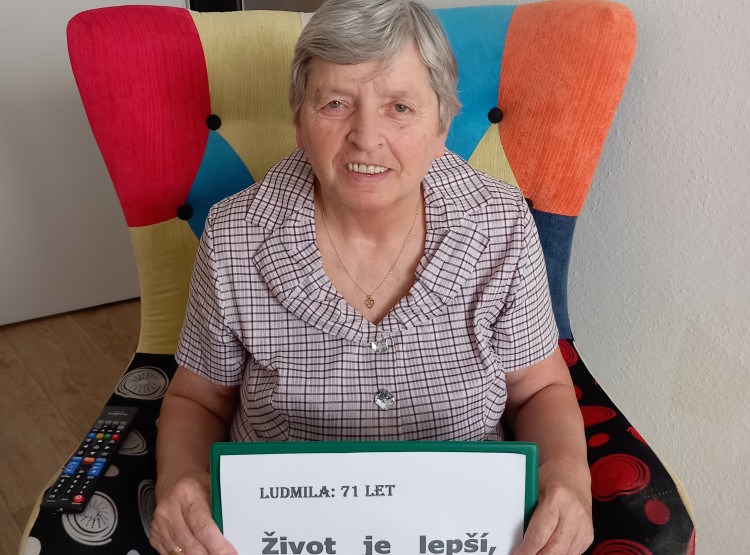 LUDMILA: 71 LET
Život je lepší,